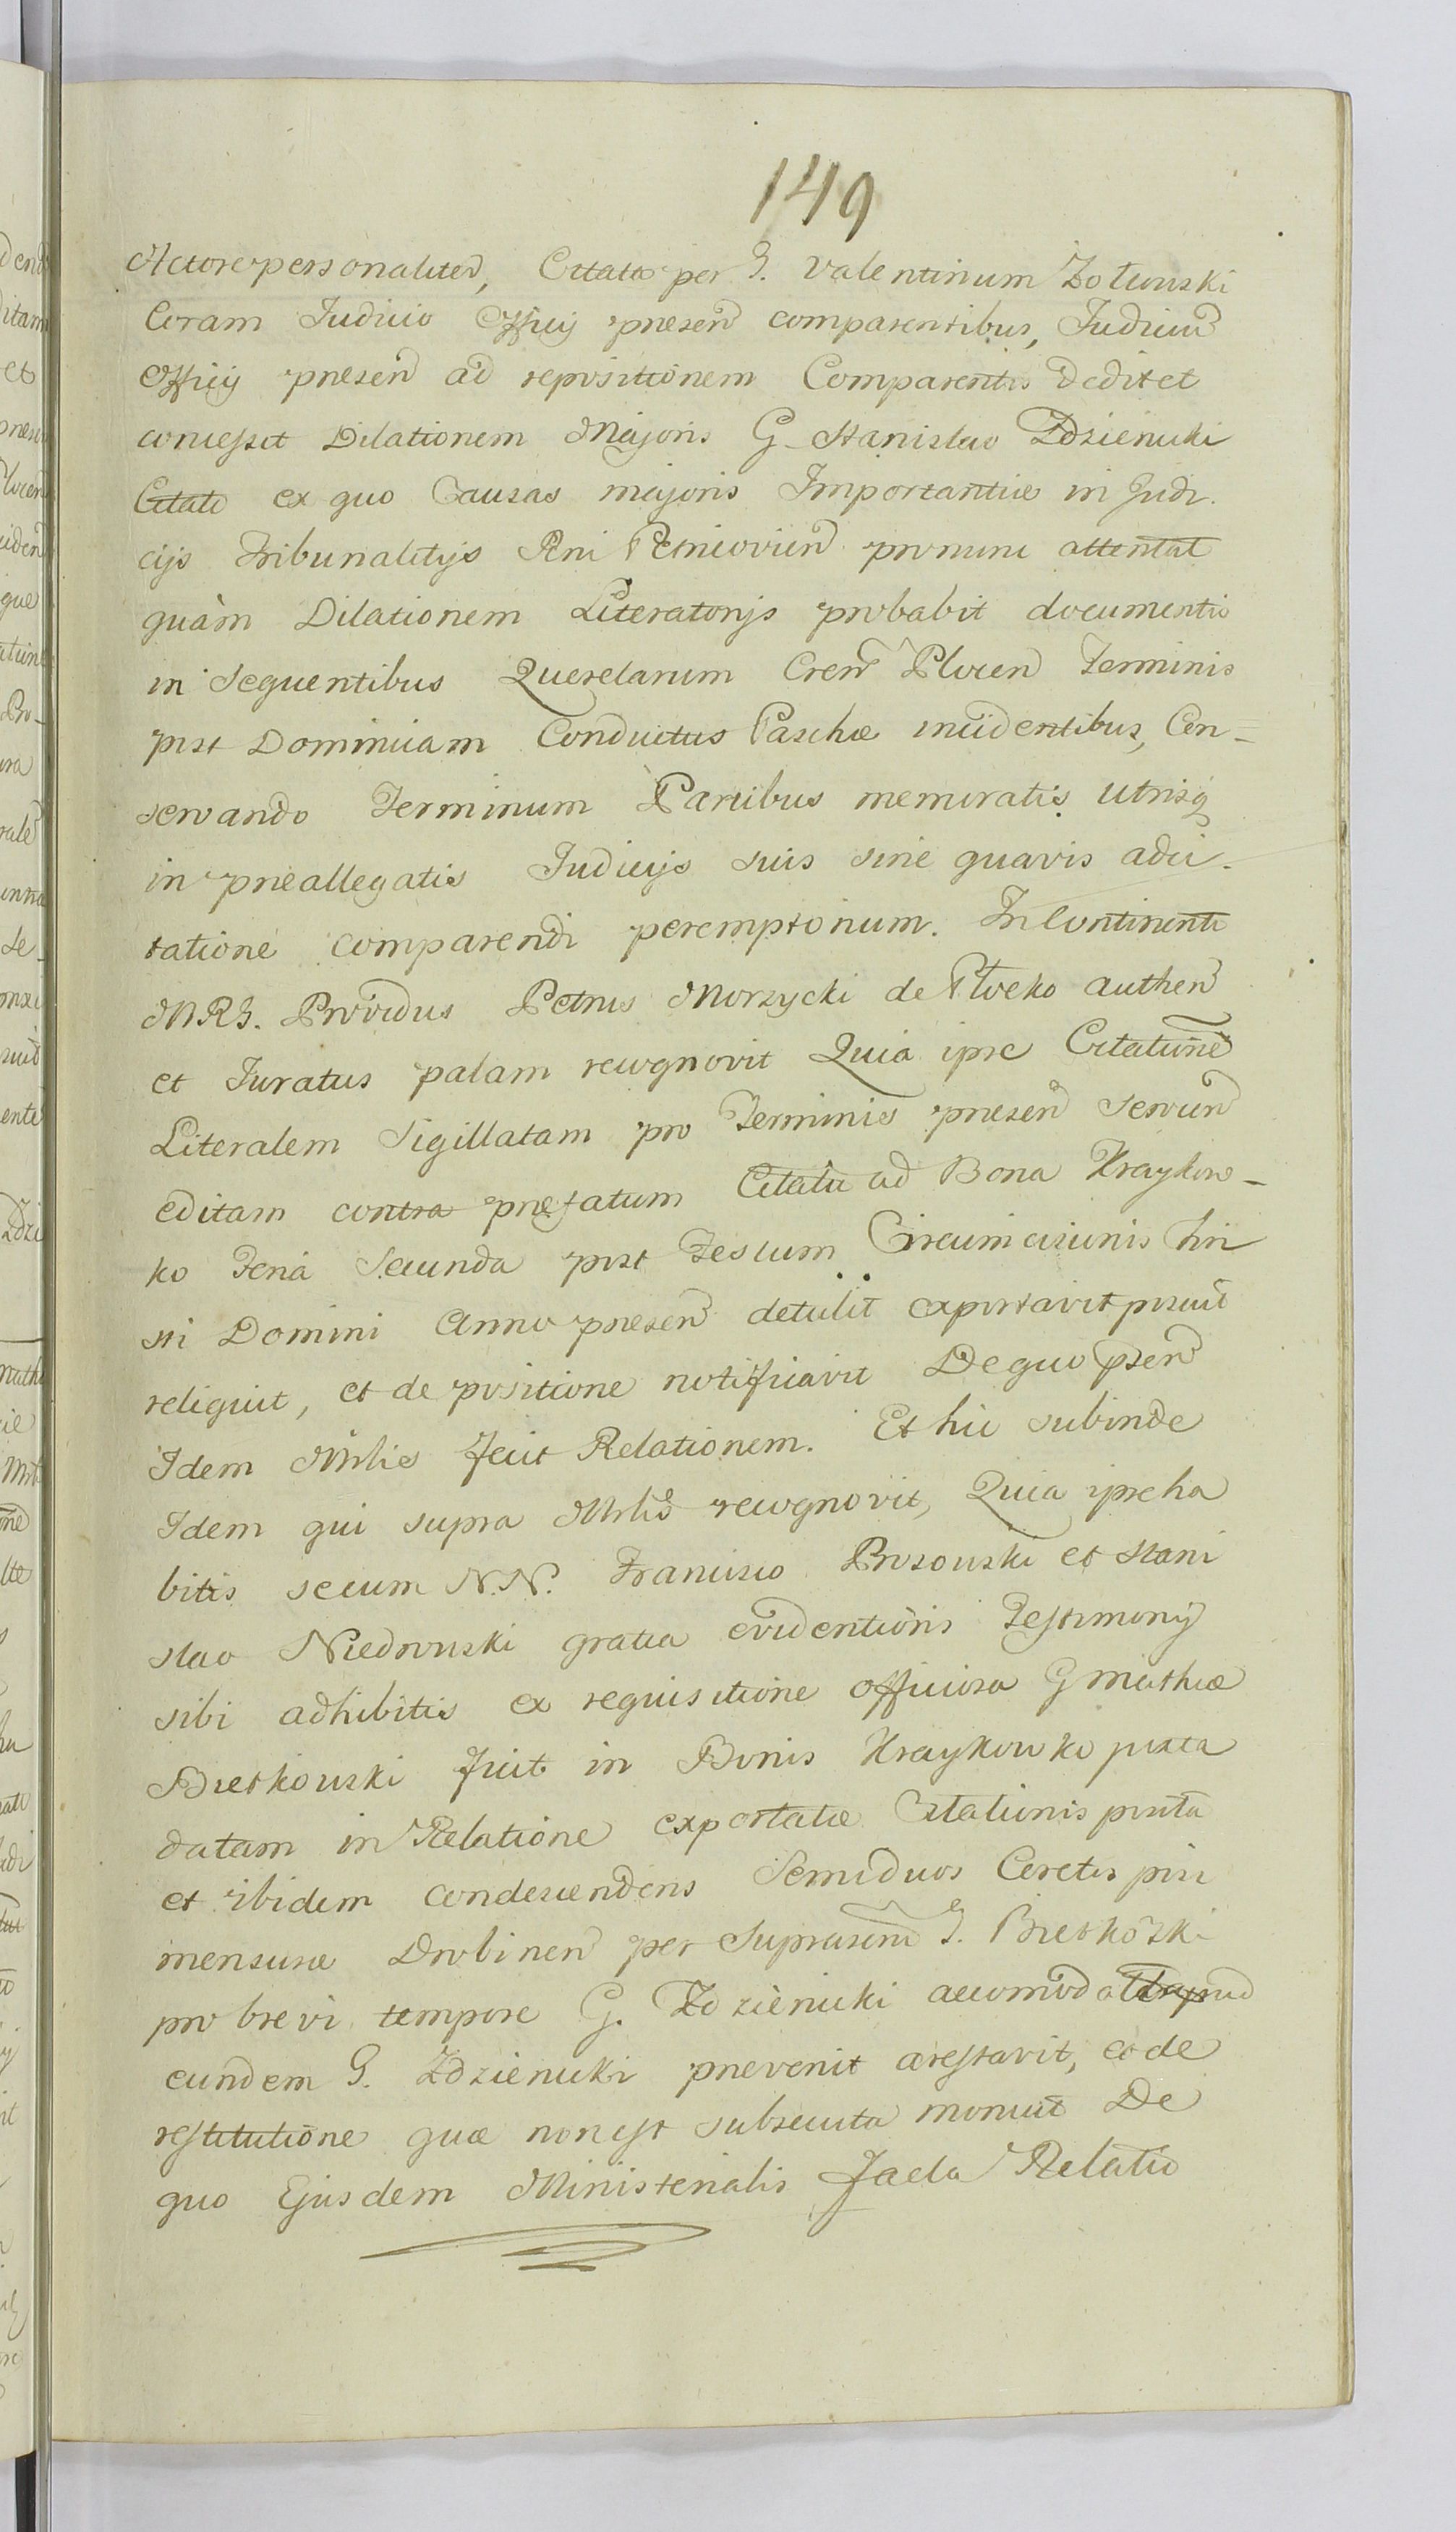 149
Actore personaliter, Citato per G. Valentinum Żołtowski
Coram Judicio Officij presen comparentibus, Judicium
Officij presen ad repositionem Comparentis dedit et
concessit Dilationem Majoris G. Stanislao Zdzienicki
Citato ex quo Causas majoris Importantiæ in Judi-
cijs Tribunalitijs Rni Petricovien pro nunc attentat
quàm Dilationem Literatorijs probabit documentis
in Sequentibus Querelarum Cren Plocen Terminis
post Dominicam Conductus Paschæ incidentibus, Con=
servando Terminum Partibus memoratis utrisq
in preallegatis Judicijs suis sine quavis adci-
tatione comparendi peremptorium. In Continenti
MRG. Providus Petrus Morzycki de Płocko authen
et Juratus palam recognovit Quia ipse Citatione
Literalem Sigillatam pro Terminis presen Servien
editam contra prefatum Citatu ad Bona Kraykow-
ko Feria Secunda post Festum Circumcisionis Chri
sti Domini Anno presen detulit exportavit posuit
reliquit, et de positione notificavit De quo psen
Idem Mrlis fecit Relationem. Et hic subinde
Idem qui supra Mrlis recognovit, Quia ipse ha
bitis secum N.N. Francisco Brzozowski et Stani
slao Niedrowski gratia evidentioris Testimonij
sibi adhibitis ex requisitione officiosa G Mathiæ
Bietkowski fuit in Bonis Kraykowko juxta
datam in Relatione exportatæ Citationis posita
et ibidem condescendens Semiduos Coretos pisi
mensuræ Drobinen per Suprascrm G. Bietkowski
pro brevi tempore G. Zdzienicki accomodat apud
eundem G. Zdzienicki prevenit arestavit, et de
restitutione quæ non est subsecuta monuit De
quo Ejusdem Ministerialis facta Relatio